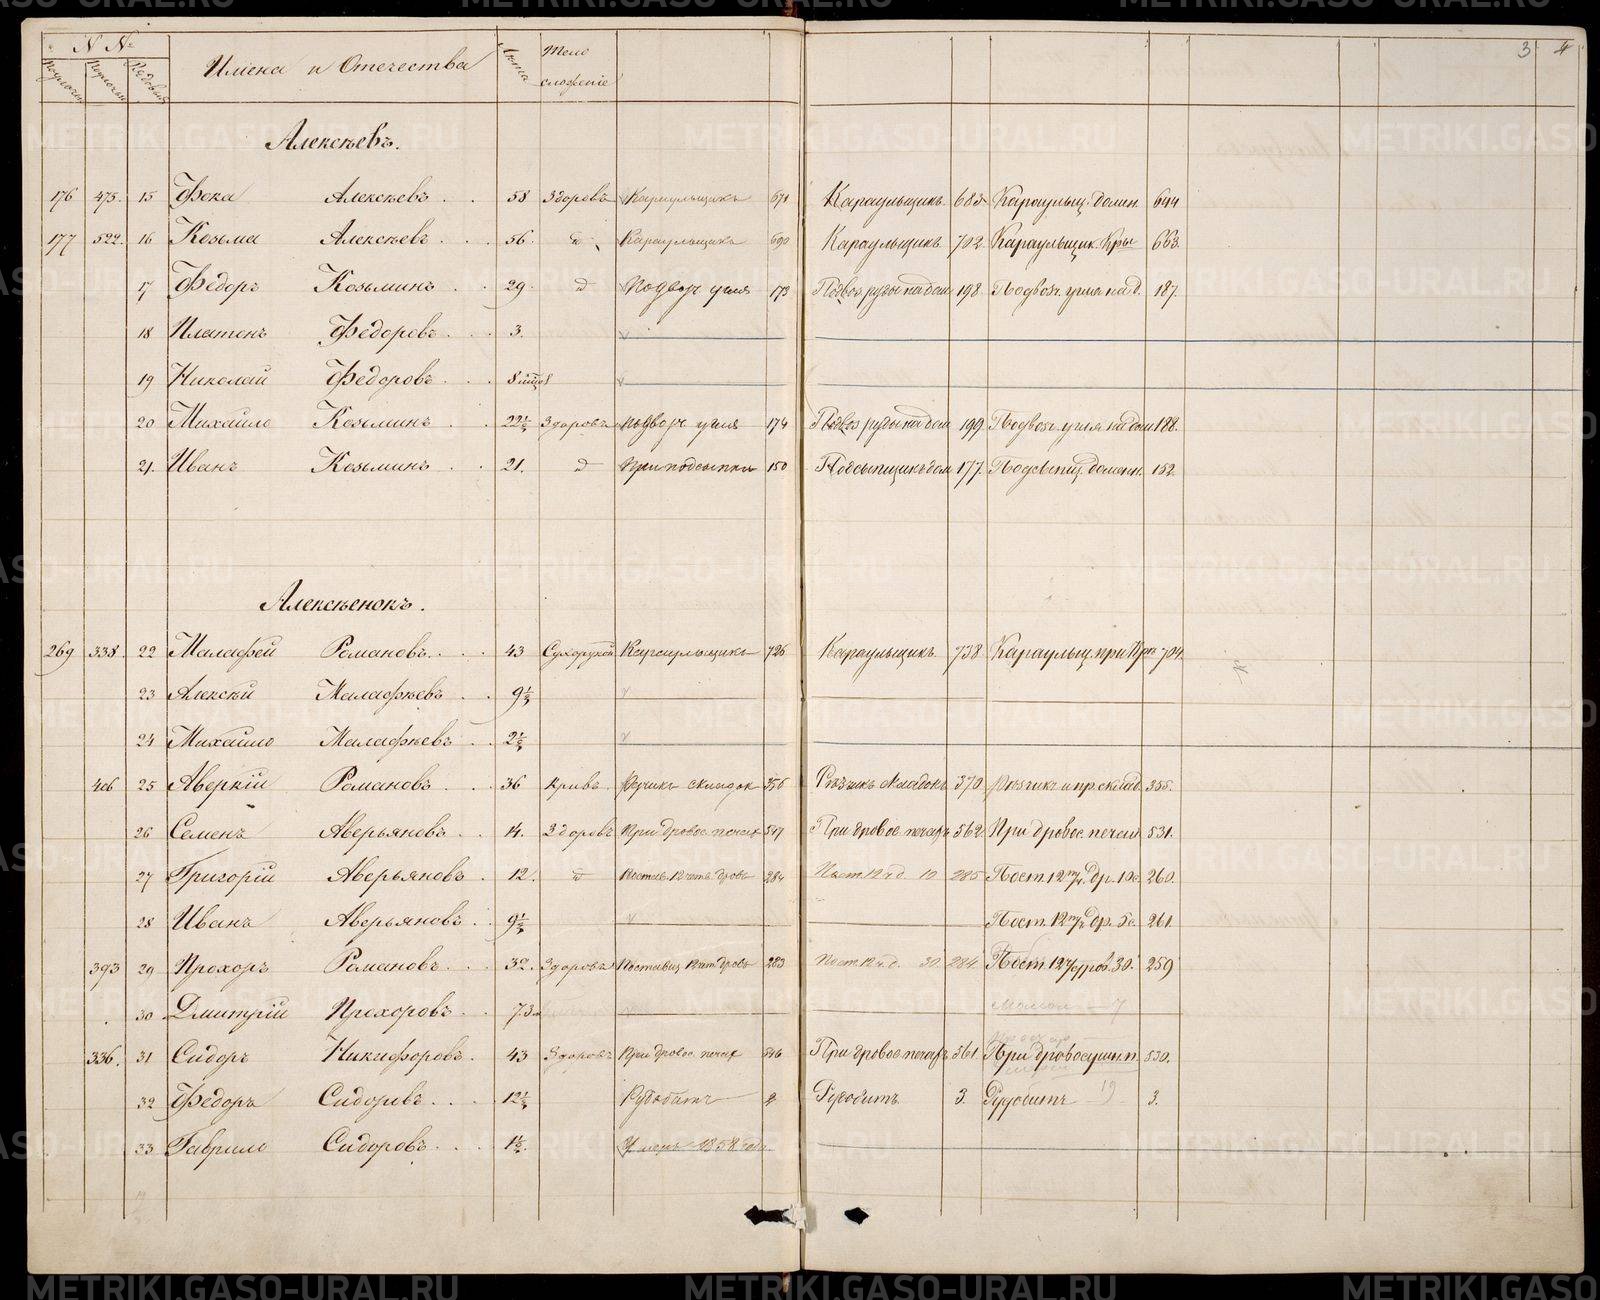 N Nо 3 4
Имена и Отечества Лѣта Тѣло
сложеніе
Алексѣевъ.
176 475. 15 Фока Алексѣевъ . . 58 Здоровъ Караульщикъ 671 Караульщикъ 683 Караульщ. домен. 644
177 522. 16 Козьма Алексѣевъ . . . 56. Караульщикъ 690 Караульщикъ 702 Караульщик. 663.
17 Ѳедоръ Козьминъ . . 29. Подвозк угля 173 Подвоз руды на дом 198. Подвозк. угля на д. 187.
18 Платонъ Ѳедоровъ . . . 3.
19 Николай Ѳедоровъ . . .
20 Михайло Козьминъ . . 22½ Здоровъ Подвозк угля 174 Подвоз руды на дом 199 Подвозк. угля на дом 188.
21. Иванъ Козьминъ . . 21. При подсыпки 150 Подсыпщикъ дом 177. Подсыпщ. доменн. 152.
Алексѣенокъ.
269 338. 22 Малафей Романовъ . . . 43 Сухорукой Караульщикъ 726 Караульщикъ 738 Караульщ. при 704.
23 Алексѣй Малафѣевъ . . 9½
24 Михайло Малафѣевъ . . 2½
406 25 Аверкій Романовъ . . 36 Кривъ. складок 356 Рѣзчикъ складокъ 370 Рѣзчикъ и пр. склад. 355.
26 Семенъ Аверьяновъ . . 14. Здоровъ При дровос. печахъ 547 При дровос. печахъ 562 При дровос. печей 531.
27 Григорій Аверьяновъ . 12. Постав. 12 четв. дровъ 284 Пост. 12 ч. д. 10 285 Пост. 12 др. 10 с. 260.
28 Иванъ Аверьяновъ . 9½ Пост. 12 др. 5 с. 261.
393 29 Прохоръ Романовъ . . . 32. Здоровъ Поставщ 12 чет. дровъ 283 Пост. 12 ч. д. 30. 284 Пост. 12 дров. 30. 259
30 Дмитрій Прохоровъ . .
336. 31 Сидоръ Никифоровъ . 43 Здоровъ При дровос. печах 546 При дровос. печахъ 561. При дровосушн. п. 530.
32 Ѳедоръ Сидоровъ . . . 12½ Рудобитъ 2 Рудобитъ 3. Рудобитъ 19 3.
33 Гаврило Сидоровъ . . . 1½. Умеръ 1858 года
METRIKI.GASO-URAL.RU